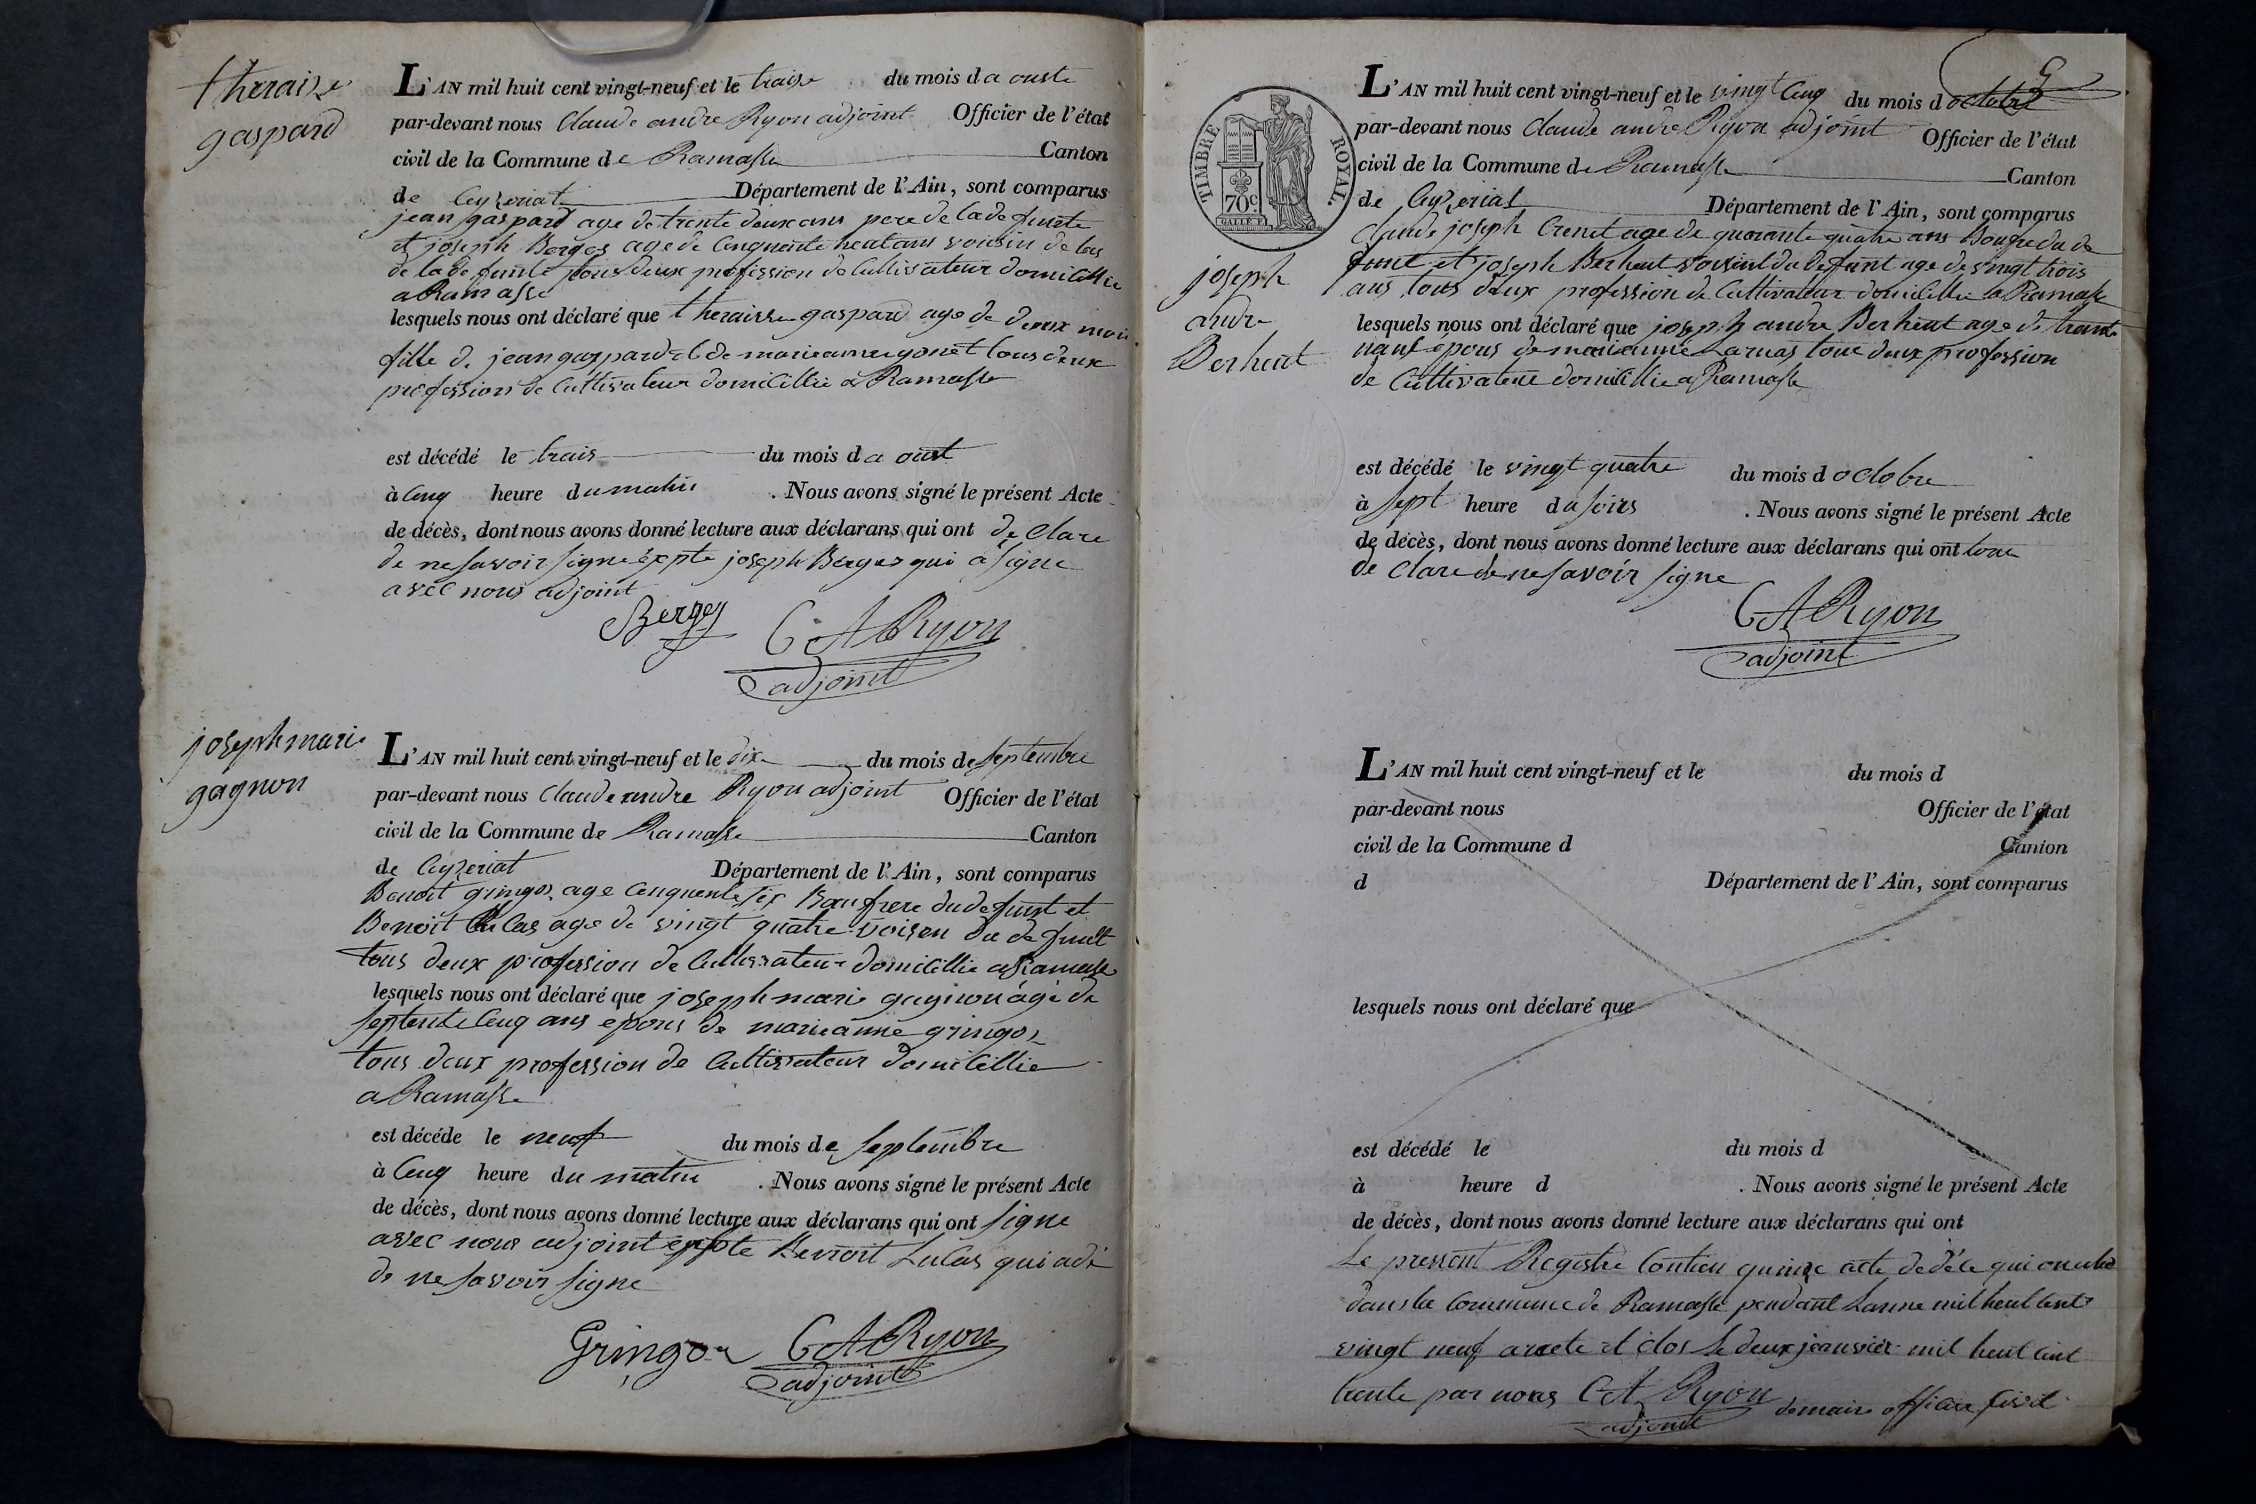 theraise
gaspard
L'AN mil huit cent vingt-neuf et le traise du mois d a ouste
par-devant nous Claude andre Ryon adjoint Officier de l'état
civil de la Commune de Ramasse Canton
de Ceyzeriat Département de l'Ain, sont comparus
jean gaspard age de trente deux ans pere de la defunte
et joseph Berger age de Cenquente heut ans voisin de
de la defunte tous deux profission de Cultivateur domicillie
a Ramasse
lesquels nous ont déclaré que theraisse gaspard age de deux moi
fille de jean gaspard et de marieanne gonet tous deux
profession de Cultivateur domicillie a Ramasse
est décédé le trais du mois d a oust
à Cenq heure du matin . Nous avons signé le présent Acte
de décès, dont nous avons donné lecture aux déclarans qui ont de Clare
de ne savoir signe éxpte joseph Berger qui a signe
avec nous adjoint
Berger CA Ryon
adjoint
joseph marie
gagnon
L'AN mil huit cent vingt-neuf et le dix du mois de septembre
par-devant nous Claude andre Ryon adjoint Officier de l'état
civil de la Commune de Ramasse Canton
de Ceyzeriat Département de l'Ain, sont comparus
Benoit gringoz age Cenquente six Baufrere du defunt et
Benoit Lucas age de vingt quatre voisen du defunt
tous deux profession de Cultivateur domicillie a Ramasse
lesquels nous ont déclaré que joseph marie gagnon âgé de
septente Cenq ans epous de marieanne gringoz
tous deux profession de Cultivateur domicillie
a Ramasse
est décéde le neuf du mois de septembre
à Cenq heure du matin . Nous avons signé le présent Acte
de décès, dont nous avons donné lecture aux déclarans qui ont signe
avec nous adjoint expte Benoit Lucas qui a dé
de ne savoir signe
Gringoz CA Ryon
adjoint
TIMBRE ROYAL.
70c
joseph
andre
Berheut
L'AN mil huit cent vingt-neuf et le vingt Cenq du mois d octobre
par-devant nous Claude andre Ryon adjoint Officier de l'état
civil de la Commune de Ramasse Canton
de Ceyzeriat Département de l'Ain, sont comparus
Claude joseph age de quarante quatre ans du de
funt et joseph Berheut voisint du defunt age de vingt trois
ans tous deux profession de Cultivateur domicillie a Ramasse
lesquels nous ont déclaré que joseph andre Berheut age de trante
nauf epous de marianne Larnas tous deux profession
de Cultivateur domicillie a Ramasse
est décédé le vingt quatre du mois d octobre
à sept heure du soirs . Nous avons signé le présent Acte
de décès, dont nous avons donné lecture aux déclarans qui ont tous
de Clare de ne savoir signe
CA Ryon
adjoint
L'AN mil huit cent vingt-neuf et le du mois d
par-devant nous Officier de l'état
civil de la Commune d Canton
d Département de l'Ain, sont comparus
lesquels nous ont déclaré que
est décédé le du mois d
à heure d . Nous avons signé le présent Acte
de décès, dont nous avons donné lecture aux déclarans qui ont
Le pressent Registre Contien quinze acte de
dans la Commune de Ramasse pendant Lanne mil heut cent
vingt neuf arrete et clos le deux janvier mil heut cent
trente par nous CA Ryon
adjoint
de maire officier Civil